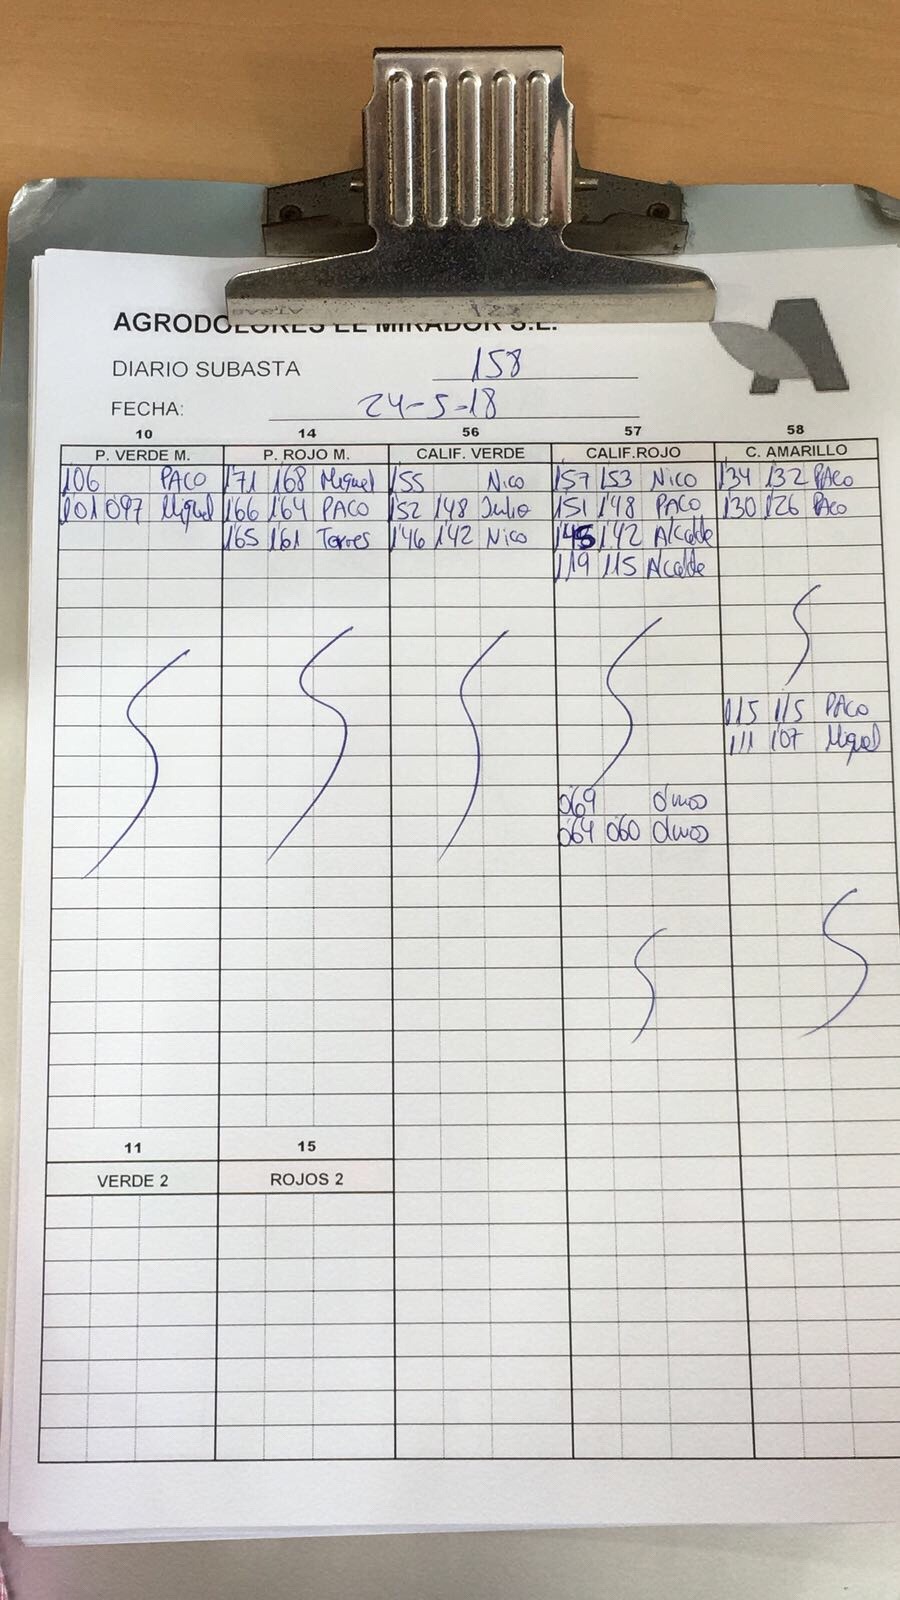 AGRODOLORES EL MIRADOR S.L.
DIARIO SUBASTA 158
FECHA: 24-5-18
10 14 56 57 58
P. VERDE M. P. ROJO M. CALIF. VERDE CALIF.ROJO C. AMARILLO
1'06 PACO 1'71 1'68 Miguel 1'55 Nico 1'57 1'53 Nico 1'34 1'32 PACO
1'01 0'97 Miguel 1'66 1'64 PACO 1'52 1'48 Julio 1'51 1'48 PACO 1'30 1'26 PACO
1'65 1'61 Torres 1'46 1'42 Nico 1'45 1'42 Alcalde
1'19 1'15 Alcalde
1'15 1'15 PACO
1'11 1'07 Miguel
0'69
0'64 0'60
11 15
VERDE 2 ROJOS 2